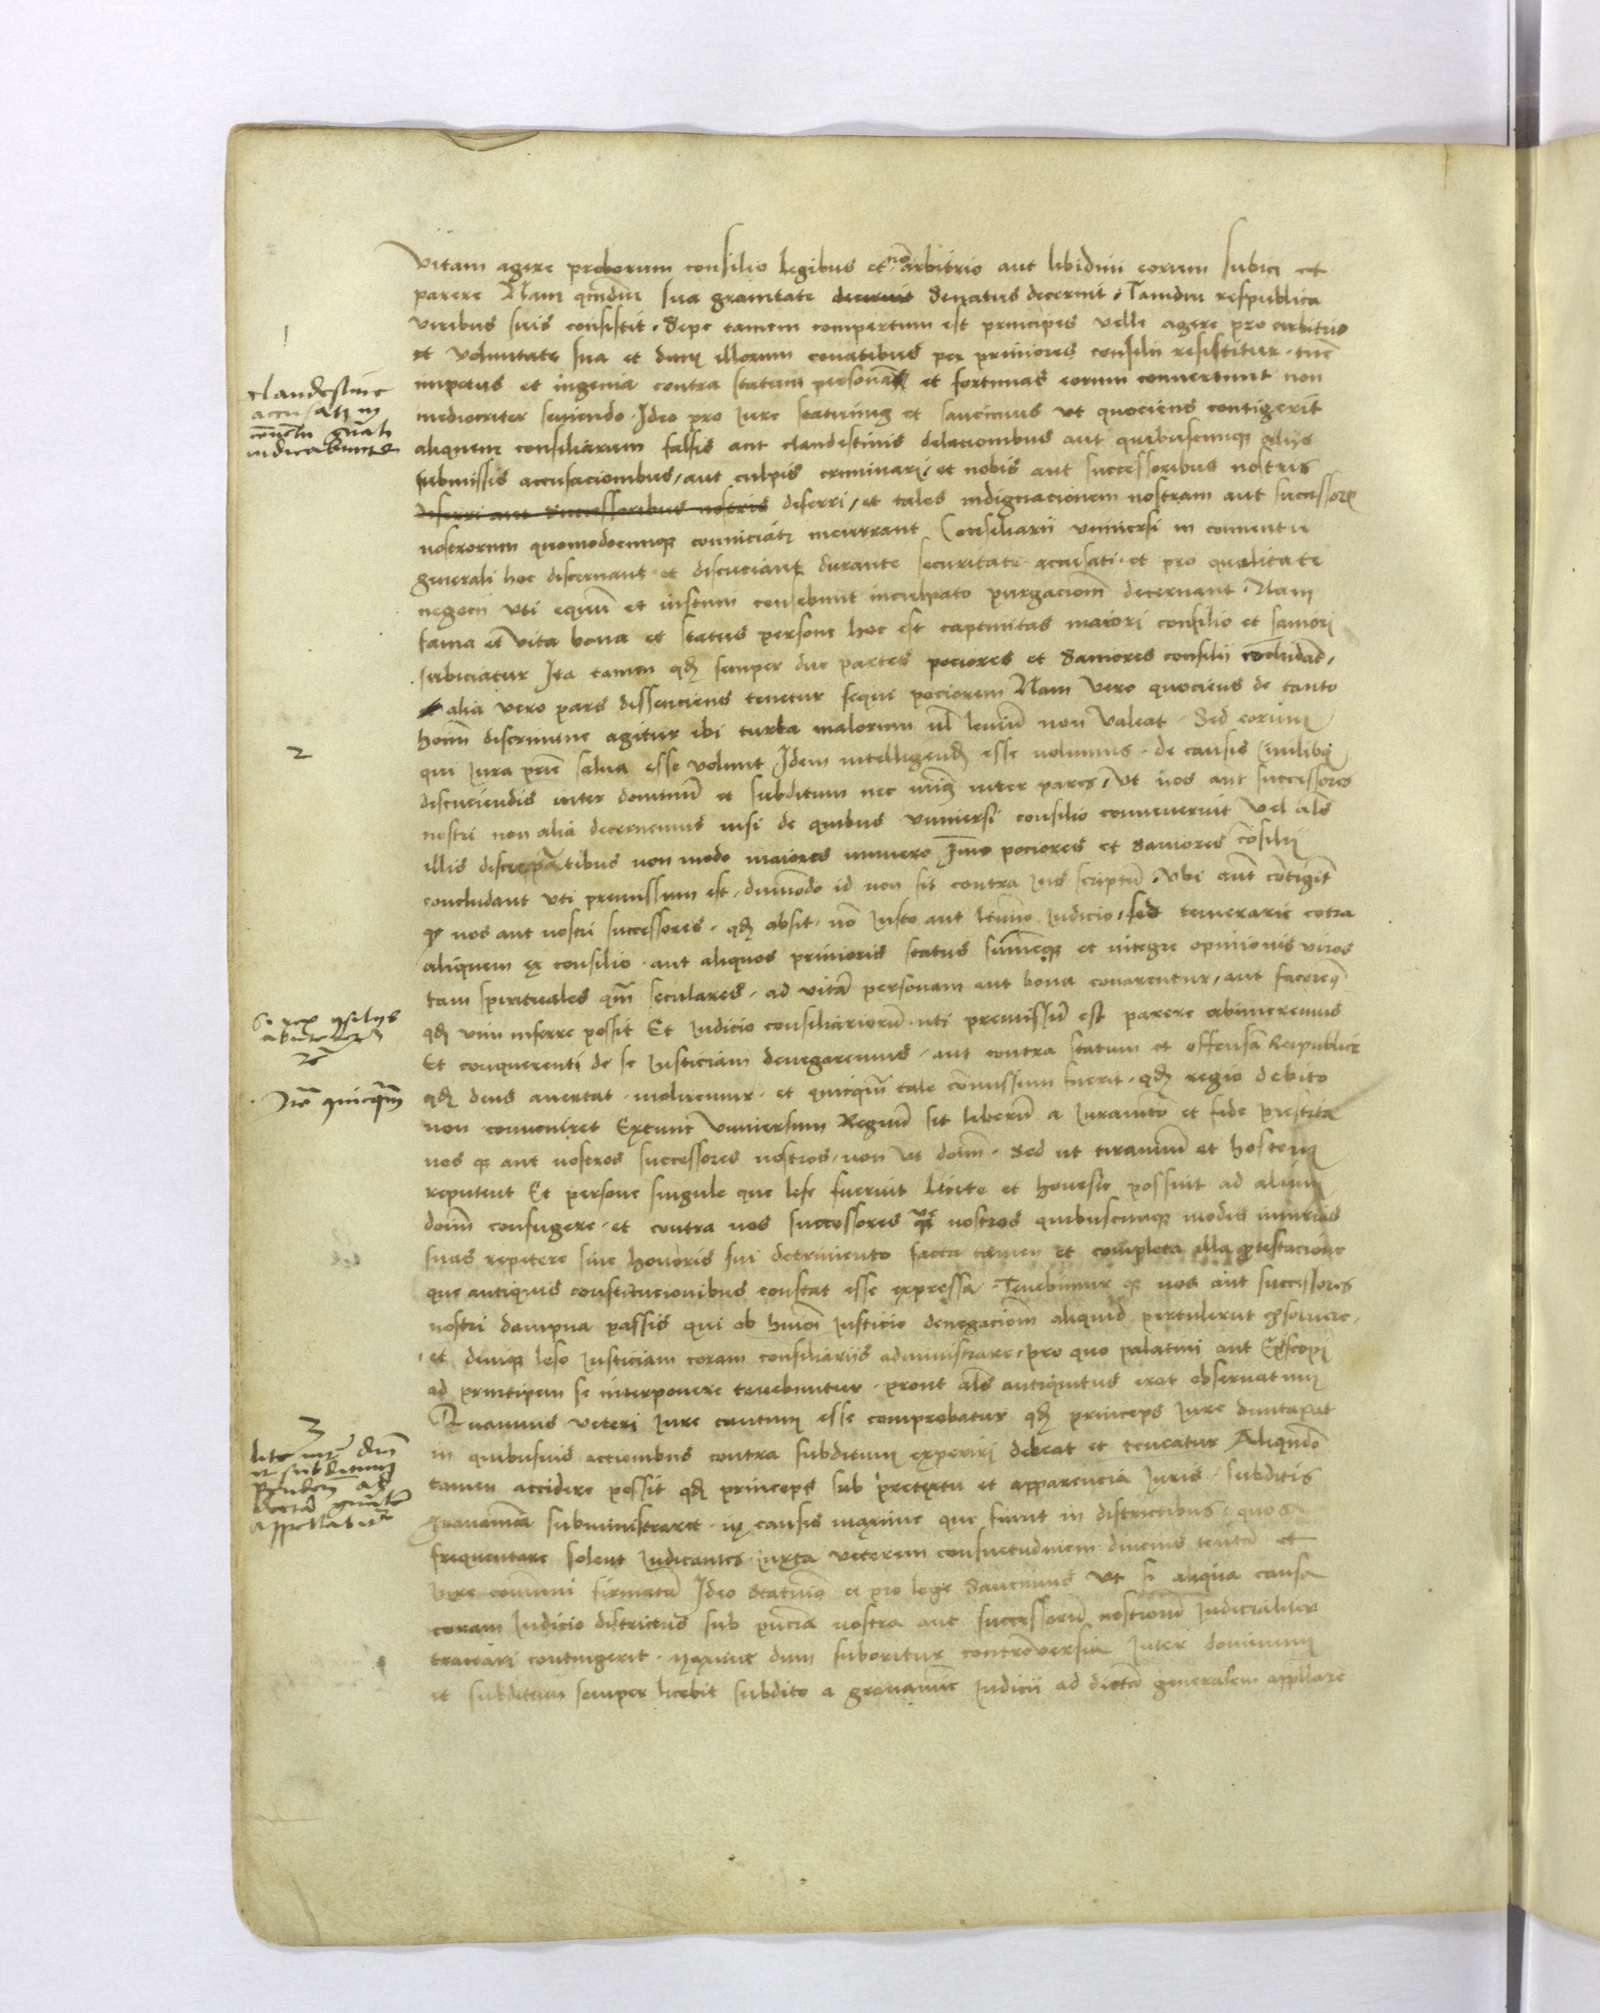 vitam agere proborum consilio legibus et nō arbitrio aut libidini eorum subici et
parere Nam qmdiu sua grauitate decreuit Senatus decernit, Tamdiu respublica
viribus suis consistit. Sepe tamen compertum est principes velle agere pro arbitrio
et voluntate sua et dum illorum conatibus per priniores consilii resistitur. tūc
impetus et ingenia contra statum personas et fortunas eorum conuertunt non
mediocriter seuiendo. Ideo pro iure statuimꝰ et sanccimus vt quociens contigerit
aliquem consiliarium falsis aut clandestinis delacionibus aut quibuscumqꝫ alijs
submissis accusacionibus, aut culpis criminari, et nobis aut successoribus nostris
deferri aut successoribus nostris deferri, et tales indignacionem nostram aut successorꝝ
nostrorum quomodocumqꝫ conuiciatꝫ incurrant Consiliarii vniuersi in conuentu
generali hoc discernant et discuciant durante securitate accusati. et pro qualitate
negocii vti equū et iustum censebunt inculpato purgacionē decernant. Nam
fama et vita bona et status persone hoc est captiuitas maiori consilio et saniori
subiciatur Ita tamen qđ semper due partes pociores et Saniores consilii cōcludāt,
alia vero pars dissenciens tenetur sequi pociorem Nam vero quociens de tanto
hoīm discrimine agitur ibi turba malorum vl leuiū non valeat. Sed eorum
qui iura prīe salua esse volunt Idem intelligendꝫ esse volumus. de causis ciuilibꝫ
discuciendis inter dominū et subditum nec nō inter pares, Vt nos aut successores
nostri non alia decernemus nisi de quibus vniuersi consilio conuenerint vel als
illis discrepātibus non modo maiores numero Imo pociores et Saniores cōsilii
concludant vti premissum est. dūmodo id non sit contra ius scriptū. Vbi autē cōtigīt
qꝫ nos aut nostri successores. qđ absit. nō iusto aut ltimo iudicio, sed temerarie cōtra
aliquem ex consilio aut aliquos prinioris status sumēqꝫ et integre opinionis viros
tam spirituales qm̄ seculares. ad vitā personam aut bona conarentur, aut facerēt
qđ vim inferre possit Et iudicio consiliariorū. uti premissū est parere abnueremus
Et conquerenti de se iusticiam denegaremus. aut contra statum et offensā Reipublice
qđ deus auertat. moliremur. et quicqm̄ tale cōmissum fuerit. qđ regio debito
non conueniret Extunc Vniuersum Regnū sit liberū a iuramēto et fide prestita
nos qꝫ aut nostros successores nostros, non vt dom̄. Sed ut tirannū et hostem
reputent Et persone singule que lese fuerint licite et honeste possint ad alium
dom̄ confugere. et contra nos successores qꝫ nostros quibuscumqꝫ modis iniurias
suas repetere sine honoris sui detrimento facta tamen et completa illa ꝓtestacione
que antiquis constitucionibus constat esse expressa. Tenebimur qꝫ nos aut successores
nostri dampna passis qui ob hmoi iusticie denegacionē aliquid pertulerut
et deniqꝫ leso iusticiam coram consiliariis administrare, pro quo palatini aut Episcopi
ad principem se interponere tenebuntur. prout als antiquitus erat obseruatum
Quamuis veteri iure cautum esse comprobatur qđ princeps iure dūntaxat
in quibusuis accionibus contra subditum experiri debeat et teneatur Aliqndō
tamen accidere possit qđ princeps sub pretextu et apparencia iuris. subditis
grauamina subministraret. ex causis maxime que fiunt in districtibus. quos
frequentare solent iudicantes iuxta veterem consuetudinem diucius tentā et
iure cōmuni firmatā Ideo Statuimꝰ et pro lege Sanccimus Vt si aliqua causa
coram iudicio districtus sub pn̄cia nostra aut successorū nostrorū iudicialiter
tractari contingerit. maxime dum suboritur controuersia inter dominum
et subditum semper licebit subdito a grauamine iudicii ad dietā generalem appellare
1
clandestine
accusatꝫ in
gn̄ali
iudicabuntꝰ
2
Si rex
Nō quicqm̄
3
lite int̄ dn̄
et subditum
pendente ad
appellatur